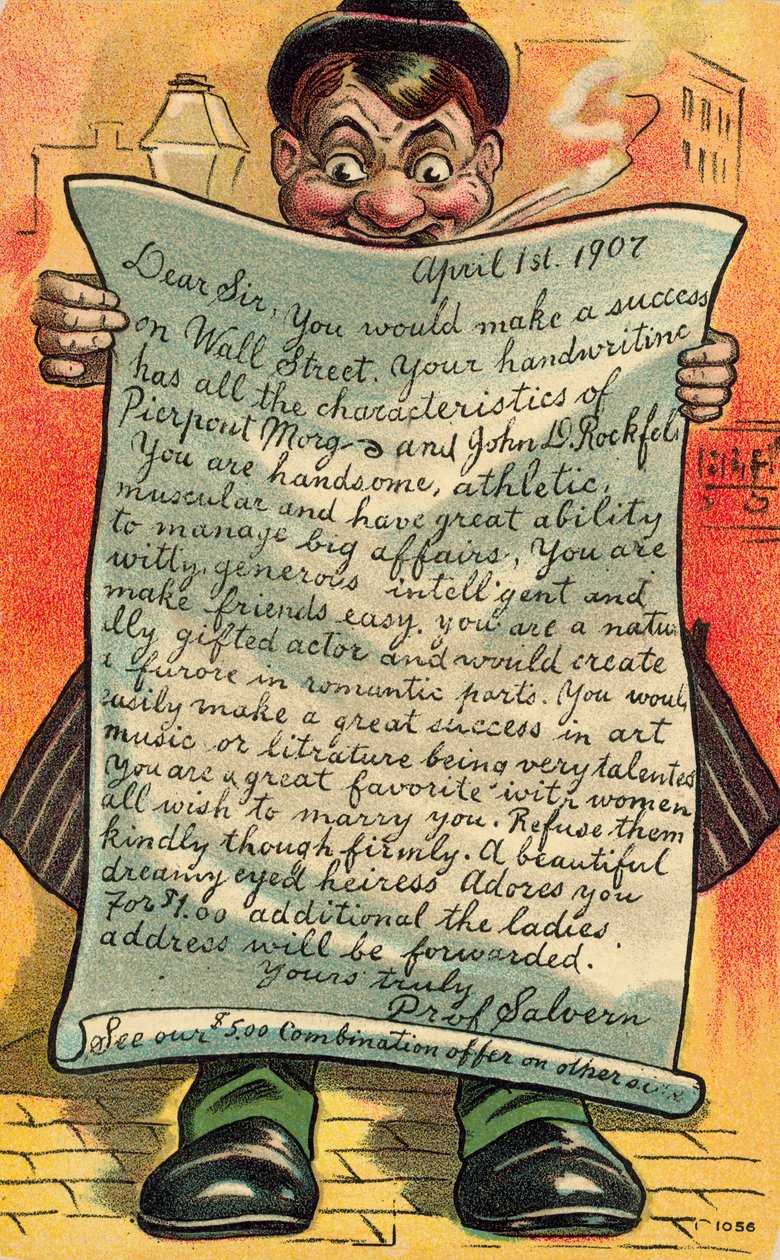 April 1st. 1907
Dear Sir, You would make a success
on Wall Street. Your handwriting
has all the characteristics of
Pierpont Morg and John D. Rockfell
You are handsome, athletic,
muscular and have great ability
to manage big affairs, You are
witty, generous intelligent and
make friends easy. you are a natu
ally gifted actor and would create
a furore in romantic parts. You would
easily make a great success in art
music or litrature being very talented
You are a great favorite with women
all wish to marry you. Refuse them
kindly though firmly. A beautiful
dreamy eyed heiress Adores you
For $1.00 additional the ladies
address will be forwarded.
Yours truly
Prof Salvern
See our $5.00 Combination offer on other side
1056